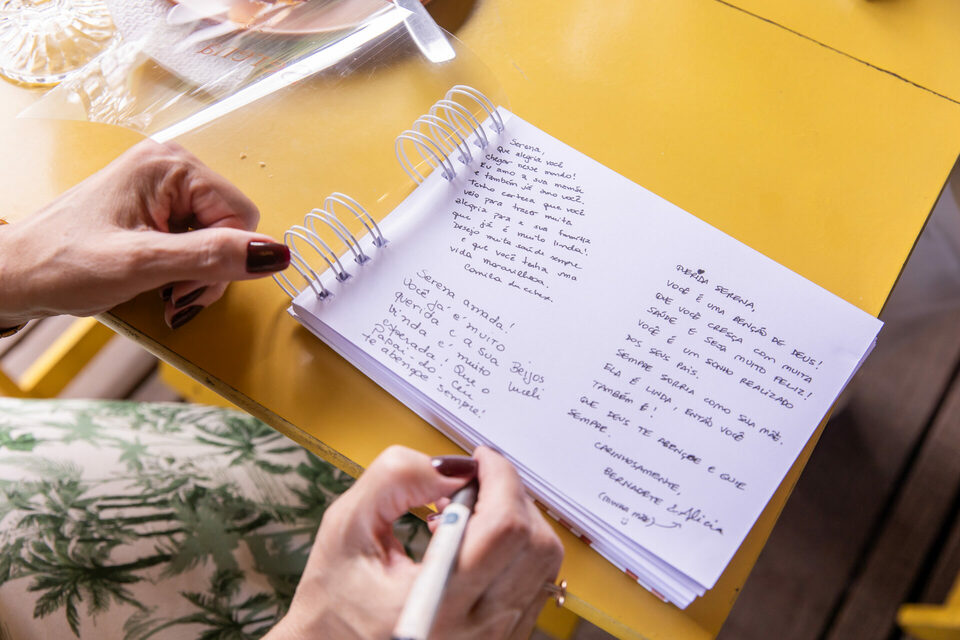 Serena,
que alegria você
chegar nesse mundo!
Eu amo a sua mamãe
e também já amo você.
Tenho certeza que você
veio para trazer muita
alegria para a sua família
que já é muito linda!
Desejo muita saúde sempre
e que você tenha uma
vida maravilhosa.
Camila
Serena amada!
Você já é muito
querida e, a sua
linda e, muito
esperada! Que o
papai do céu
te abençoe sempre!
Beijos
Sueli
QUERIDA SERENA
VOCÊ É UMA BENÇÃO DE DEUS!
QUE VOCÊ CRESÇA COM MUITA
SAÚDE E SEJA MUITO FELIZ!
VOCÊ É UM SONHO REALIZADO
DOS SEUS PAIS.
SEMPRE SORRIA COMO SUA MÃE,
ELA É LINDA, ENTÃO VOCÊ
TAMBÉM É!
QUE DEUS TE ABENÇOE E GUIE
SEMPRE.
CARINHOSAMENTE,
BERNADETE & Alicia
(MINHA MÃE)